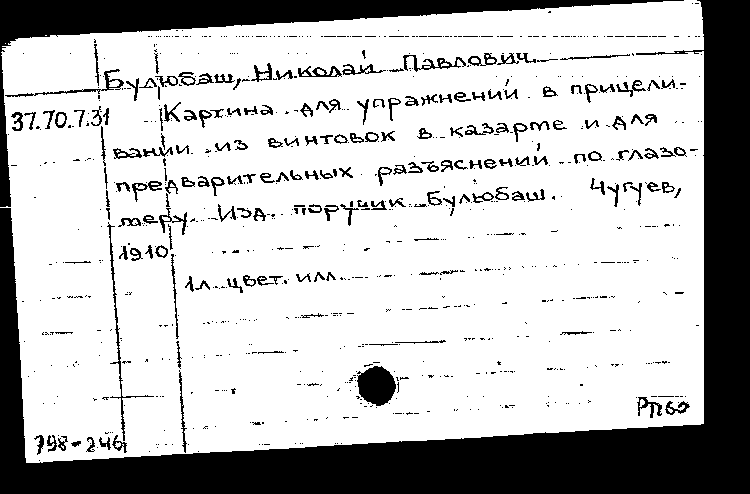 Булюбаш, Николай Павлович.
37.70.7.31 Картина для упражнений в прицели-
вании из винтовок в казарме и для
предварительных разъяснений по глазо-
меру. Изд. поручик Булюбаш. Чугуев,
1910.
1л. цвет. илл.
798-246